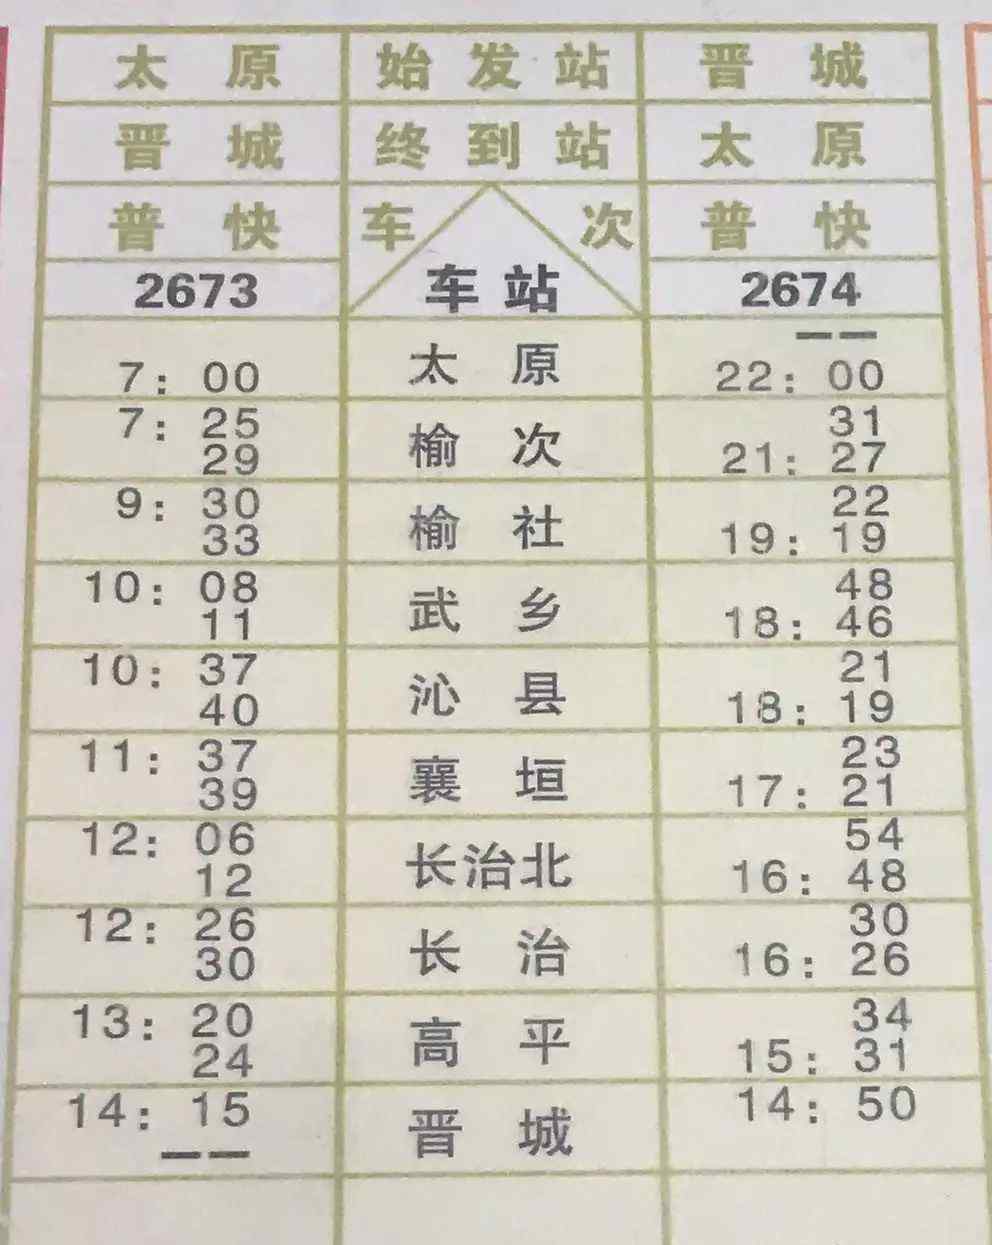 太原 始发站 晋城
晋城 终到站 太原
普快 车次 普快
2673 车站 2674
— —
7:00 太原 22:00
7:25 31
29 榆次 21:27
9:30 22
33 榆社 19:19
10:08 48
11 武乡 18:46
10:37 21
40 沁县 18:19
11:37 23
39 襄垣 17:21
12:06 54
12 长治北 16:48
12:26 30
30 长治 16:26
13:20 34
24 高平 15:31
14:15 晋城 14:50
— —